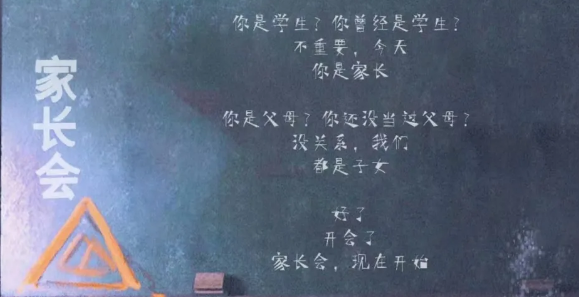 家长会
你是学生？你曾经是学生？
不重要，今天
你是家长
你是父母？你还没当过父母？
没关系，我们
都是子女
好了
开会了
家长会，现在开始